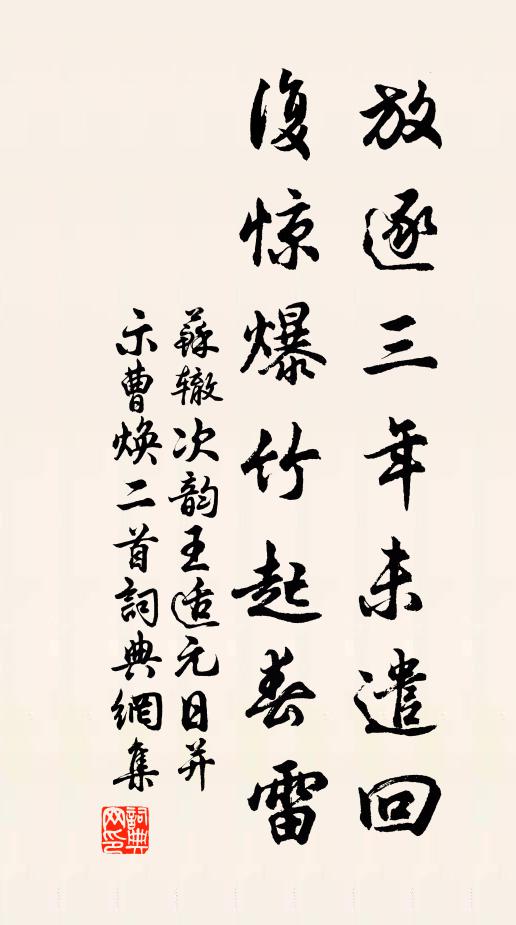 放逐三年未遣回
復惊爆竹起春雷
蘇辙次韵王适元日并
示曹焕二首詞典網集
詞典
网印